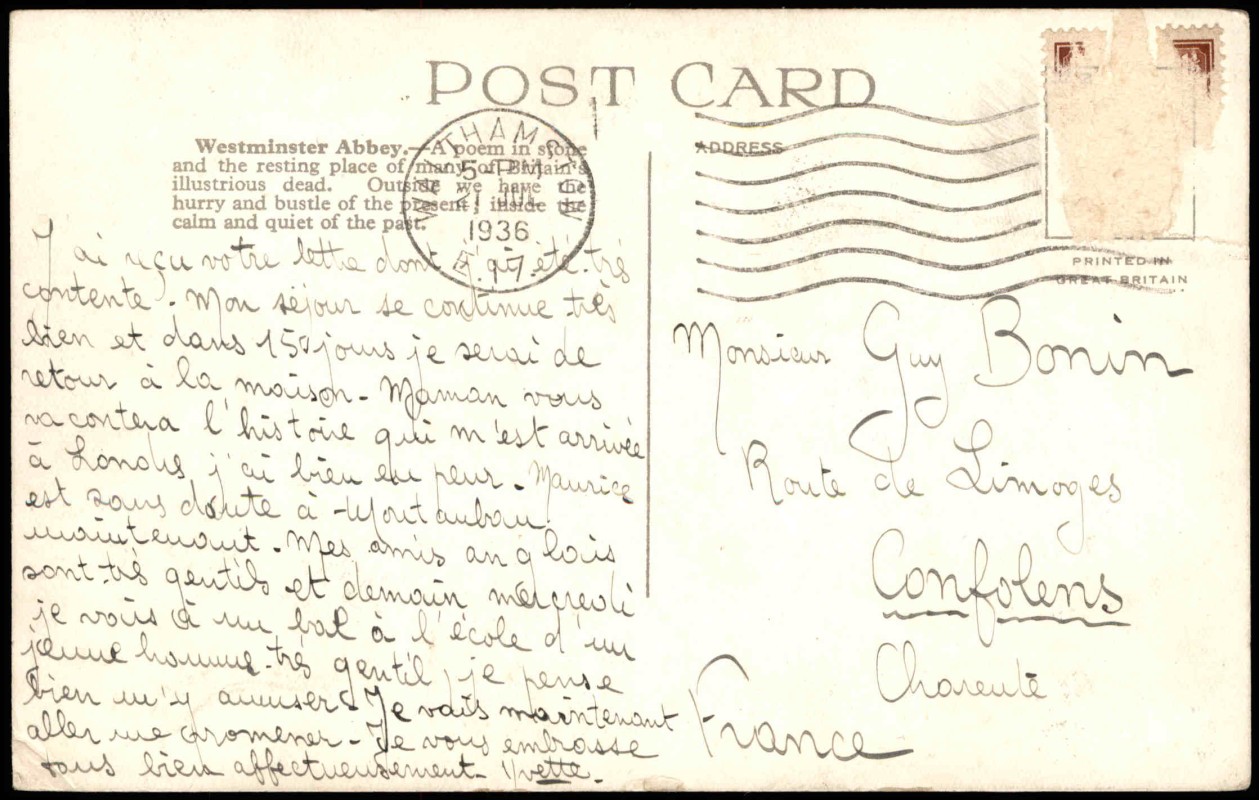 POST CARD
Westminster Abbey.—A poem in stone
and the resting place of many of Britain's
illustrious dead. Outside we have the
hurry and bustle of the present; inside the
calm and quiet of the past.
WALTHAMSTOW
5 PM
21 JUL
1936
E. 17
ADDRESS
PRINTED IN
GREAT BRITAIN
J'ai reçu votre lettre dont j'ai été très
contente. Mon séjour se continue très
bien et dans 15 jours je serai de
retour à la maison - Maman vous
racontera l'histoire qui m'est arrivée
à Londres j'ai bien eu peur - Maurice
est sans doute à Montauban
maintenant - Mes amis anglais
sont très gentils et demain mercredi
je vais à un bal à l'école d'un
jeune homme très gentil, je pense
bien m'y amuser. Je vais maintenant
aller me promener - Je vous embrasse
tous bien affectueusement - Yvette.
Monsieur Guy Bonin
Route de Limoges
Confolens
Charente
France